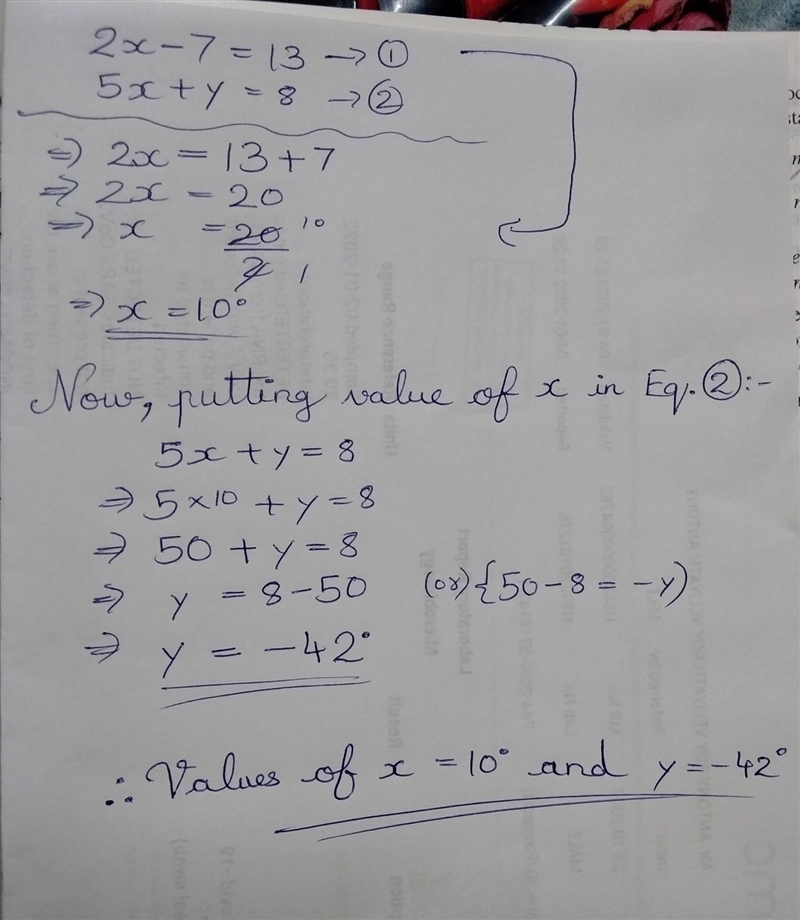 2x-7 = 13 → ①
5x + y = 8 → ②
⇒ 2x = 13 + 7
⇒ 2x = 20
⇒ x = 20/2 10 1
⇒ x = 10°
Now, putting value of x in Eq. ②:-
5x + y = 8
⇒ 5×10 + y = 8
⇒ 50 + y = 8
⇒ y = 8-50 (or) {50-8 = -y)
⇒ y = -42°
∴ Values of x = 10° and y = -42°